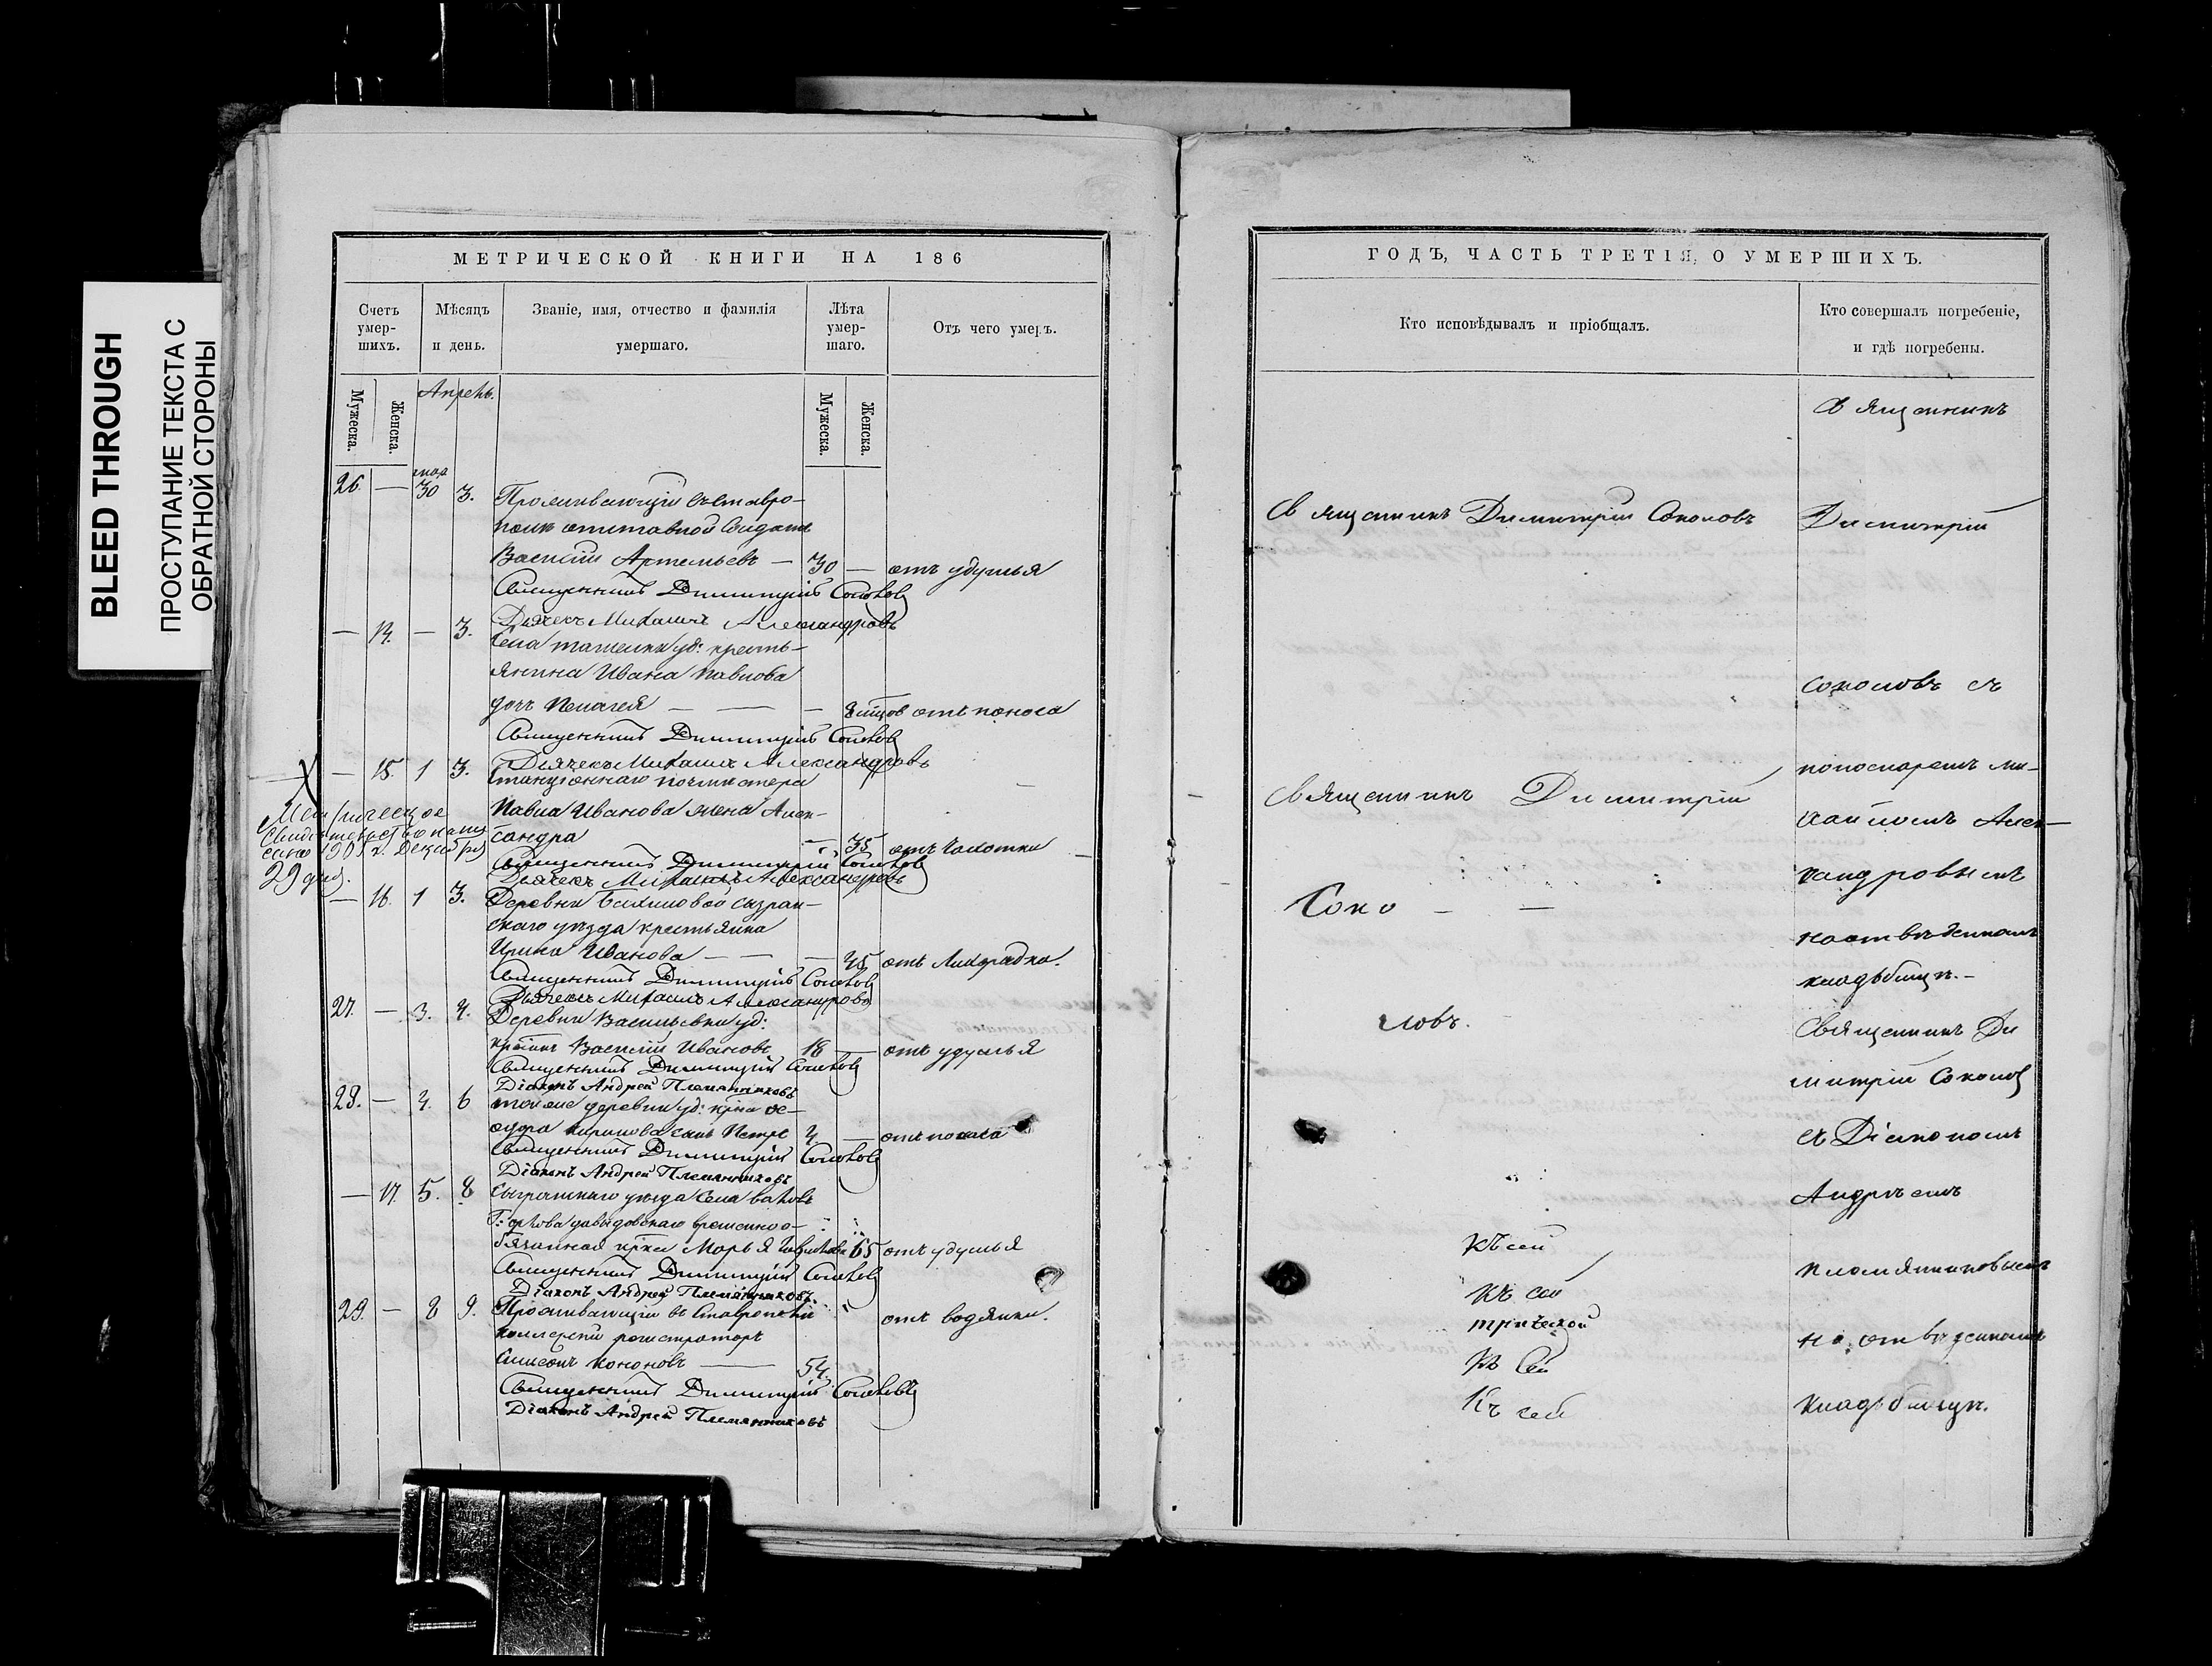 BLEED THROUGH
ПРОСТУПАНИЕ ТЕКСТА С
ОБРАТНОЙ СТОРОНЫ
МЕТРИЧЕСКОЙ КНИГИ НА 186
Счетъ умер-шихъ.
Мѣсяцъ и день.
Званіе, имя, отчество и фамилія умершаго.
Лѣта умер-шаго.
Отъ чего умеръ.
Мужеска.
Женска.
Апрель.
Мужеска.
Женска.
26. — 30 3. Проживающій въ Ставро-
полѣ отставной Солдатъ
Василій Артемьевъ — 30 — отъ удушья
Священникъ Димитрій Соколовъ
Дьячекъ Михаилъ Александровъ
— 14. — 3. Села Ташелки уд: кресть-
янина Ивана Павлова
дочь Пелагея — — — отъ поноса
Священникъ Димитрій Соколовъ
Дьячекъ Михаилъ Александровъ
— 15. 1 3. Станціоннаго почтистера
Павла Иванова жена Алек-
сандра — 35 отъ чахотки
Священникъ Димитрій Соколовъ
Дьячекъ Михаилъ Александровъ
Метрическое
Свидетельство
1905 г. Декабря
29 дня.
— 16. 1 3. Деревни Бахиловой сызран-
скаго уѣзда крестьянка
Ирина Иванова — — — 45 отъ лихорадки.
Священникъ Димитрій Соколовъ
Дьячекъ Михаилъ Александровъ
27. — 3. 4. Деревни Васильевки уд:
Василій Ивановъ 18 — отъ удушья
Священникъ Димитрій Соколовъ
Діаконъ Андрей Племянниковъ
28. — 4. 6 тойже деревни уд: кр-на Ѳе-
одора Кирилова сынъ Петръ 4. — отъ поноса
Священникъ Димитрій Соколовъ
Діаконъ Андрей Племянниковъ
— 17. 5. 8 Сызранскаго уѣзда Села
давыдовскаго временноо-
бязанная Марья 65 отъ удушья
Священникъ Димитрій Соколовъ
Діаконъ Андрей Племянниковъ.
29. — 8 9. Проживающій въ Ставрополѣ
регистраторъ отъ водянки.
Симеонъ Кононовъ — 54.
Священникъ Димитрій Соколовъ
Діаконъ Андрей Племянниковъ
ГОДЪ, ЧАСТЬ ТРЕТІЯ, О УМЕРШИХЪ.
Кто исповѣдывалъ и пріобщалъ.
Кто совершалъ погребеніе, и гдѣ погребены.
Священникъ Димитрій Соколовъ
Священникъ Димитрій
Соко — —
ловъ.
Къ сей
Къ сей
трической
Къ сей
Къ сей
Священникъ
Димитрій
Соколовъ съ
пономаремъ Ми-
хаиломъ Алек-
сандровымъ
на отведенномъ
кладбищѣ.-
Священникъ Ди
митрій Соколовъ
съ Діакономъ
Андреемъ
Племянниковымъ
на отведенномъ
кладбищѣ.